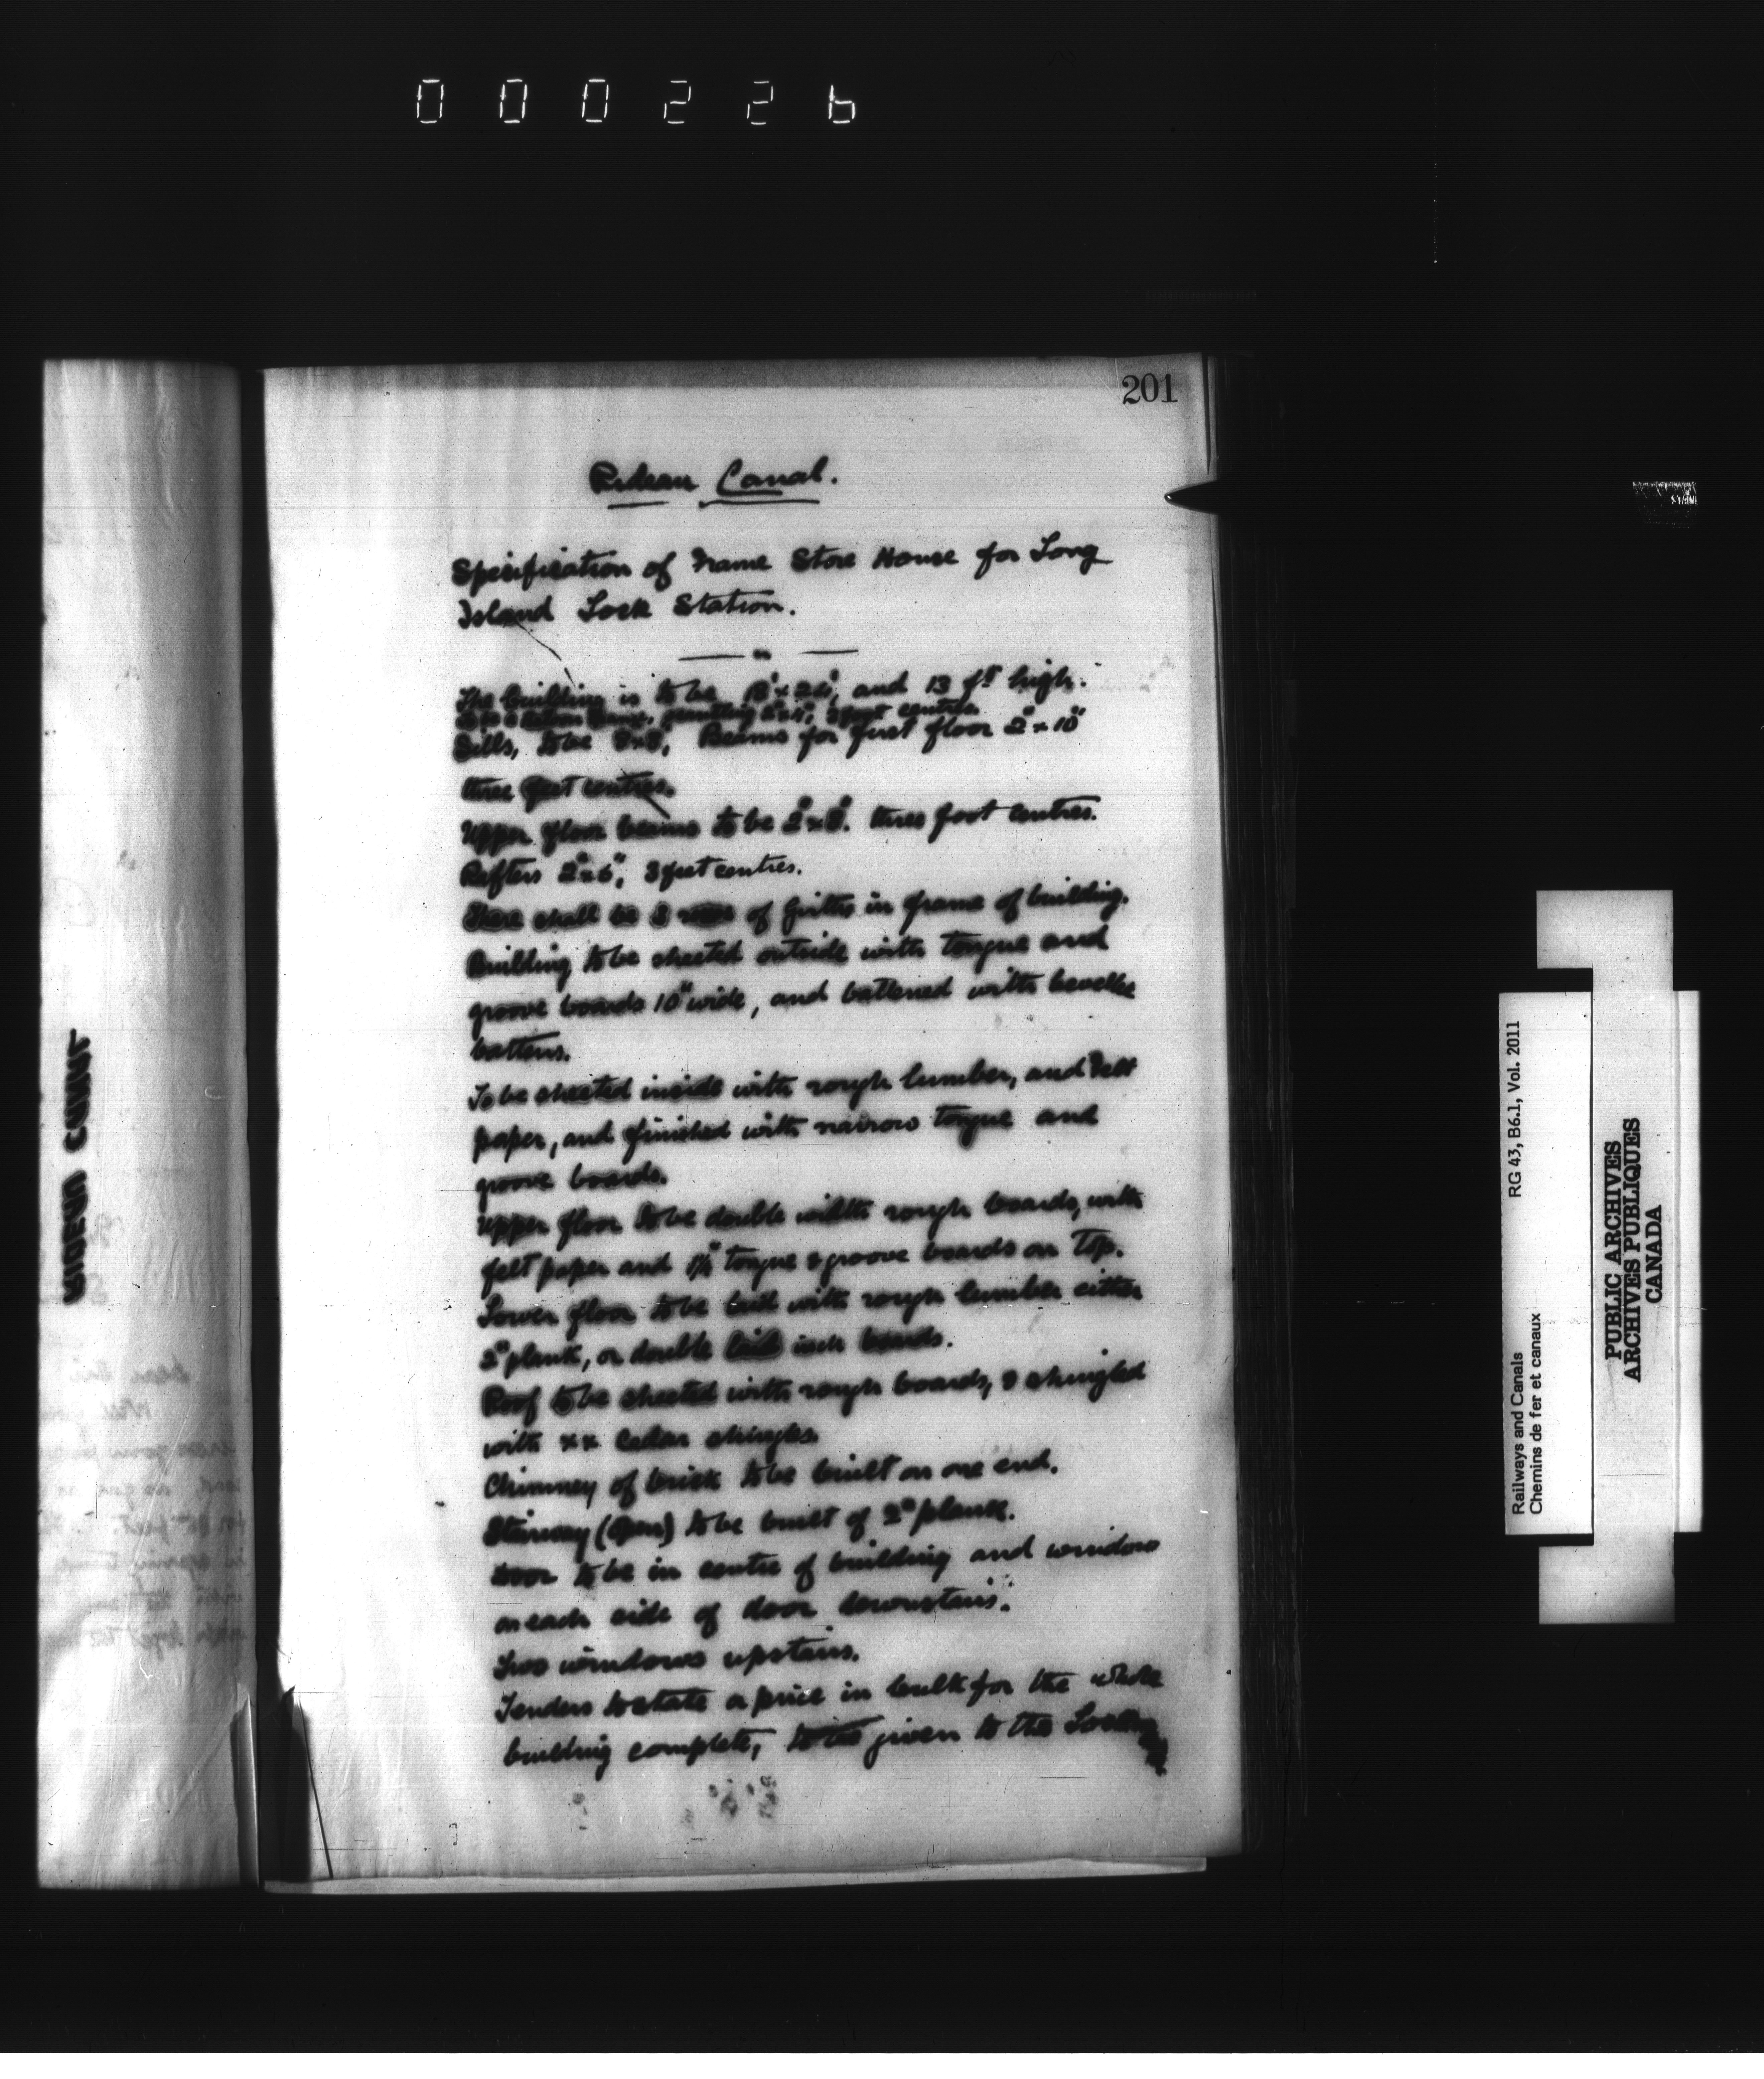 000226
201
Rideau Canal.
Specification of Frame Store House for Long
Island Lock Station.
The building is to be 18'x26', and 13 ft high.
to be a balloon frame, scantling 2"x4", 2 feet centres.
Sills, to be 8x8", Beams for first floor 2"x10"
three feet centres.
Upper floor beams to be 2"x8". three foot centres.
Rafters 2"x6", 3 feet centres.
There shall be 3 rows of girths in frame of building.
Building to be sheeted outside with tongue and
groove boards 10" wide, and battened with bevelled
battens.
To be sheeted inside with rough lumber, and Felt
paper, and finished with narrow tongue and
groove boards.
Upper floor to be double with rough boards, with
felt paper and 1¼" tongue & groove boards on top.
Lower floor to be laid with rough lumber either
2" plank, or double laid inch boards.
Roof to be sheeted with rough boards, & shingled
with xx Cedar shingles.
Chimney of brick to be built on one end.
Stairway (Open) to be built of 2" plank.
Door to be in centre of building and window
on each side of door downstairs.
Two windows upstairs.
Tenders to state a price in bulk for the whole
building complete, given to the
RIDEAU CANAL
Railways and Canals RG 43, B6.1, Vol. 2011
Chemins de fer et canaux
PUBLIC ARCHIVES
ARCHIVES PUBLIQUES
CANADA